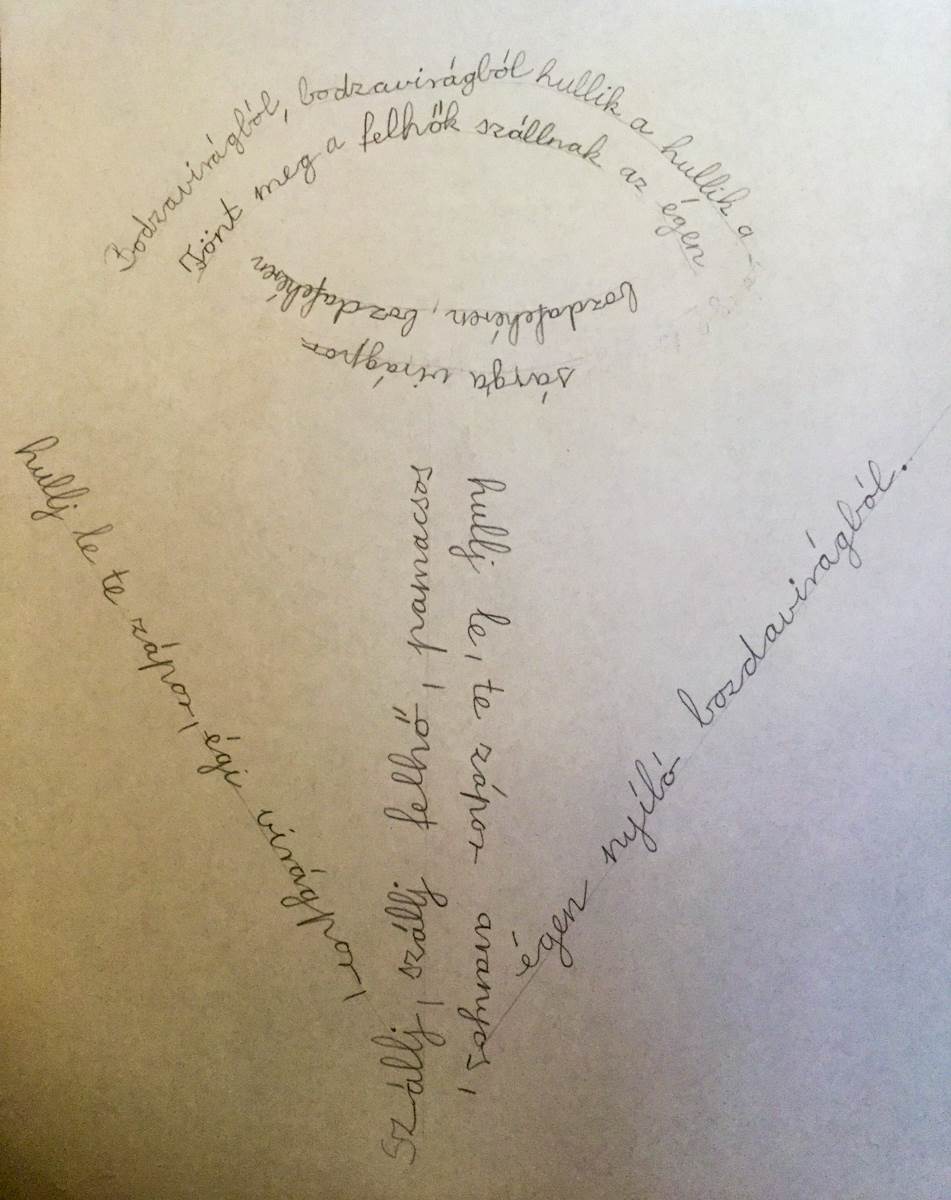 Bodzavirágból, bodzavirágból hullik a hullik a
sárga virágpor
Fönt meg a felhők szállnak az égen
bozdafehéren, bozdafehéren
Szállj, szállj felhő, pamacsos
hullj le, te zápor aranyos,
hullj le te zápor, égi virágpor,
égen nyíló bozdavirágból.